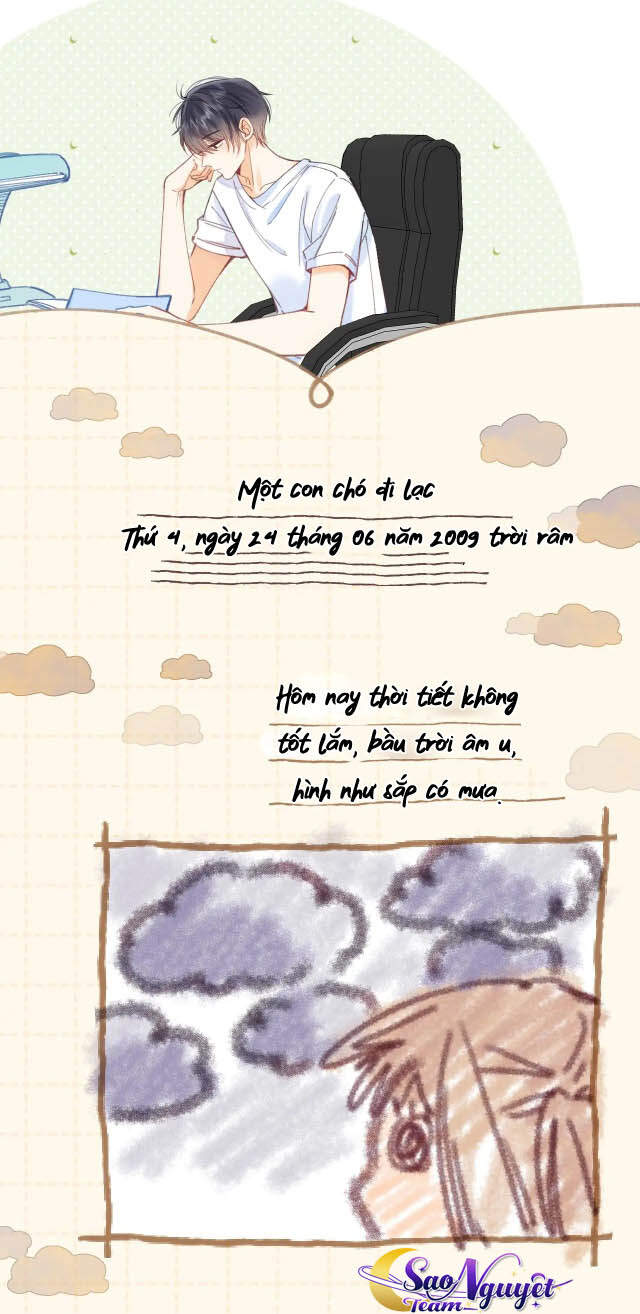 Một con chó đi lạc
Thứ 4, ngày 24 tháng 06 năm 2009 trời râm
Hôm nay thời tiết không
tốt lắm, bầu trời âm u,
hình như sắp có mưa.
Sao Nguyệt
Team